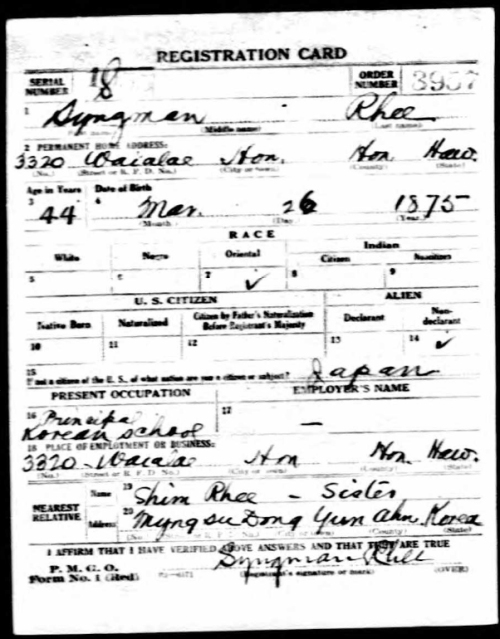 REGISTRATION CARD
SERIAL NUMBER 18 ORDER NUMBER 3957
1 Syngman Rhee
(Middle name) (Last name)
2 PERMANENT HOME ADDRESS:
3320 Waialae Hon. Hon. Haw.
(No.) (Street or R. F. D. No.) (City or town) (County) (State)
Age in Years Date of Birth
3 44 4 Mar. 26 1875
(Month) (Day) (Year)
RACE
White Negro Oriental Indian
Citizen Noncitizen
5 6 7 ✓ 8 9
U. S. CITIZEN ALIEN
Native Born Naturalized Citizen by Father's Naturalization Before Registrant's Majority Declarant Non-declarant
10 11 12 13 14 ✓
15 Japan
If not a citizen of the U. S., of what nation are you a citizen or subject?
PRESENT OCCUPATION EMPLOYER'S NAME
16 Principal 17 —
Korean School
18 PLACE OF EMPLOYMENT OR BUSINESS:
3320 - Waialae Hon Hon. Haw.
(No.) (Street or R. F. D. No.) (City or town) (County) (State)
NEAREST RELATIVE
Name 19 Shim Rhee - Sister
Address 20 Myng su Dong Yun Ahn, Korea
(No.) (Street or R. F. D. No.) (City or town) (County) (State)
I AFFIRM THAT I HAVE VERIFIED ABOVE ANSWERS AND THAT THEY ARE TRUE
P. M. G. O.
Form No. 1 (Red) Syngman Rhee
(Registrant's signature or mark) (OVER)